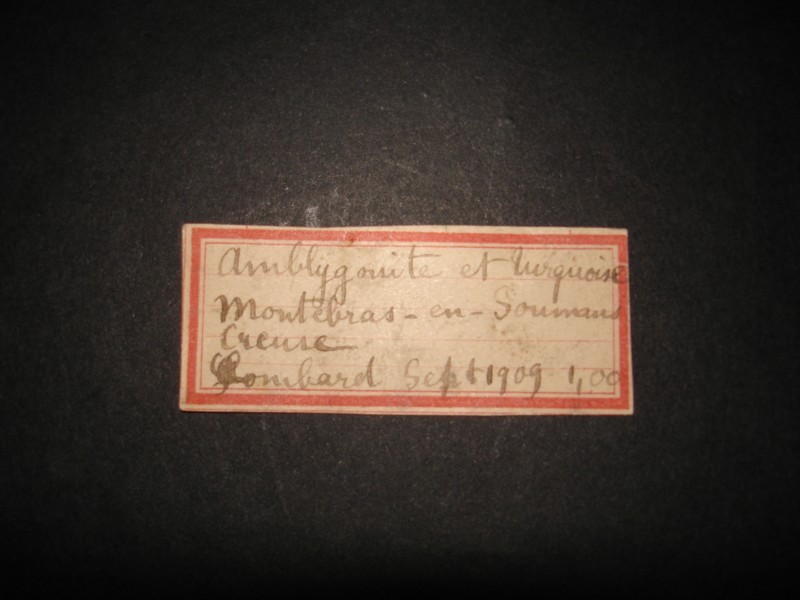 Amblygonite et turquoise
Montebras-en-Soumans
Creuse
Lombard Sept 1909 1,00